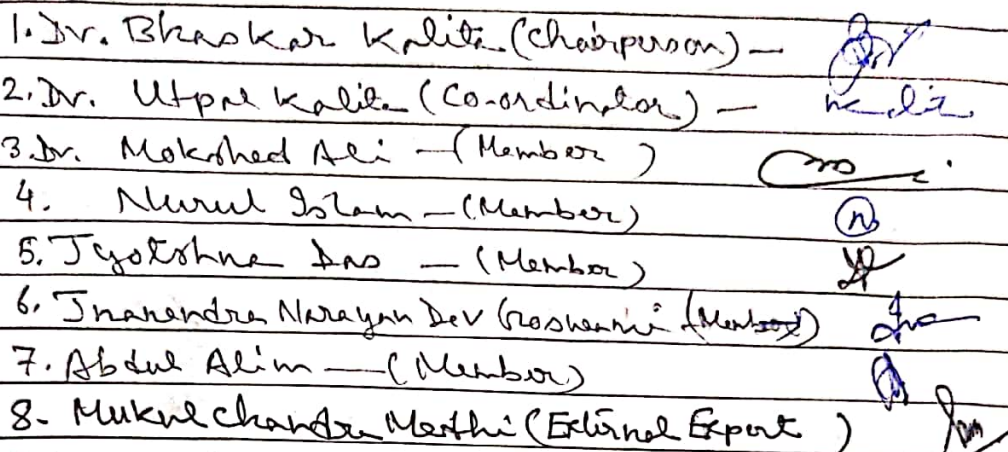 1. Dr. Bhaskar Kalita (Chairperson) —
2. Dr. Utpal Kalita (Co-ordinator) — Kalita
3. Dr. Mokshed Ali — (Member)
4. Nurul Islam — (Member)
5. Jyotshna Das — (Member)
6. Jnanendra Narayan Dev Goswami (Member)
7. Abdul Alim — (Member)
8- Mukul Chandra (External Expert)